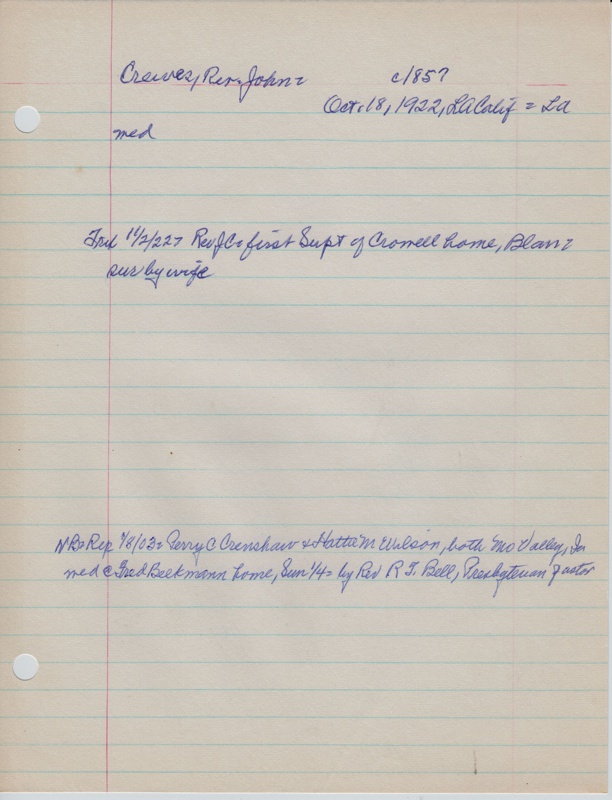 Crewes, Rev. John = c1857
Oct. 18, 1922, LA Calif = Ld
med
Trib 11/2/22 = Rev JC = first Supt of Crowell home, Blair =
sur by wife
NB = Rep 1/8/03 = Perry C Crenshaw & Hattie M Wilson, both Mo Valley, Ia
med @ Fred Beekmann home, Sun 1/4 = by Rev R T. Bell, Presbyterian Pastor